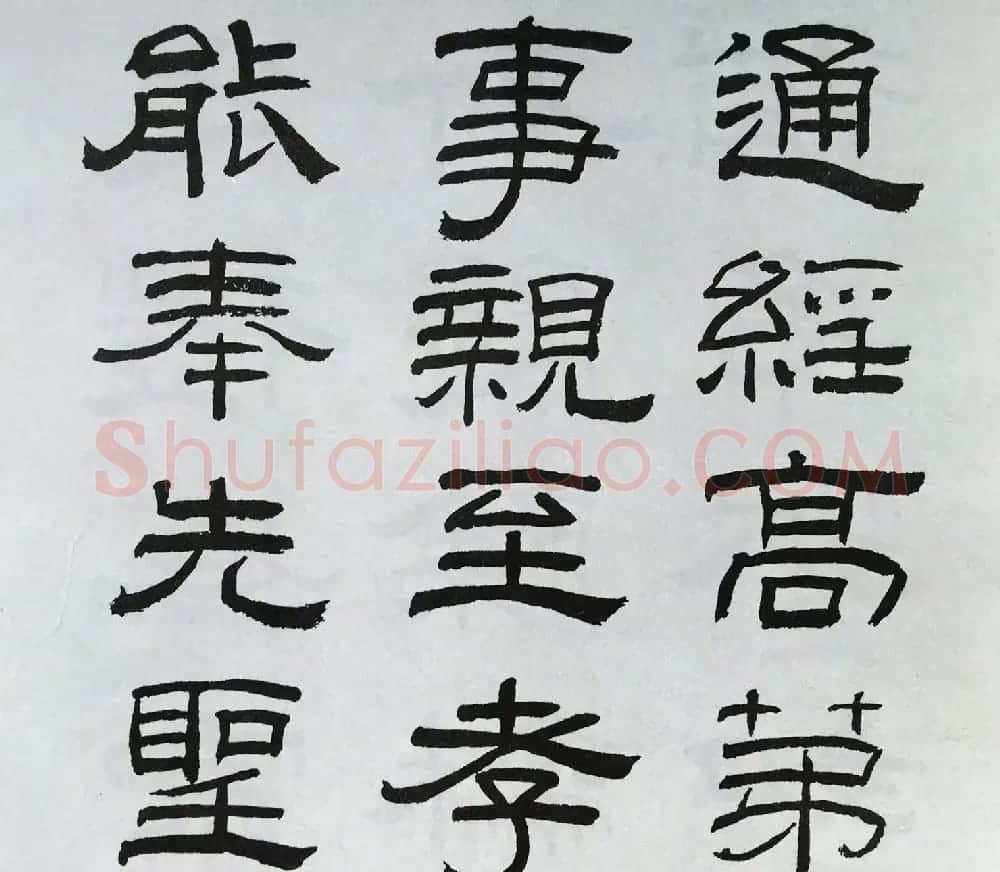 通經高第
事親至孝
能奉先聖
Shufaziliao.COM